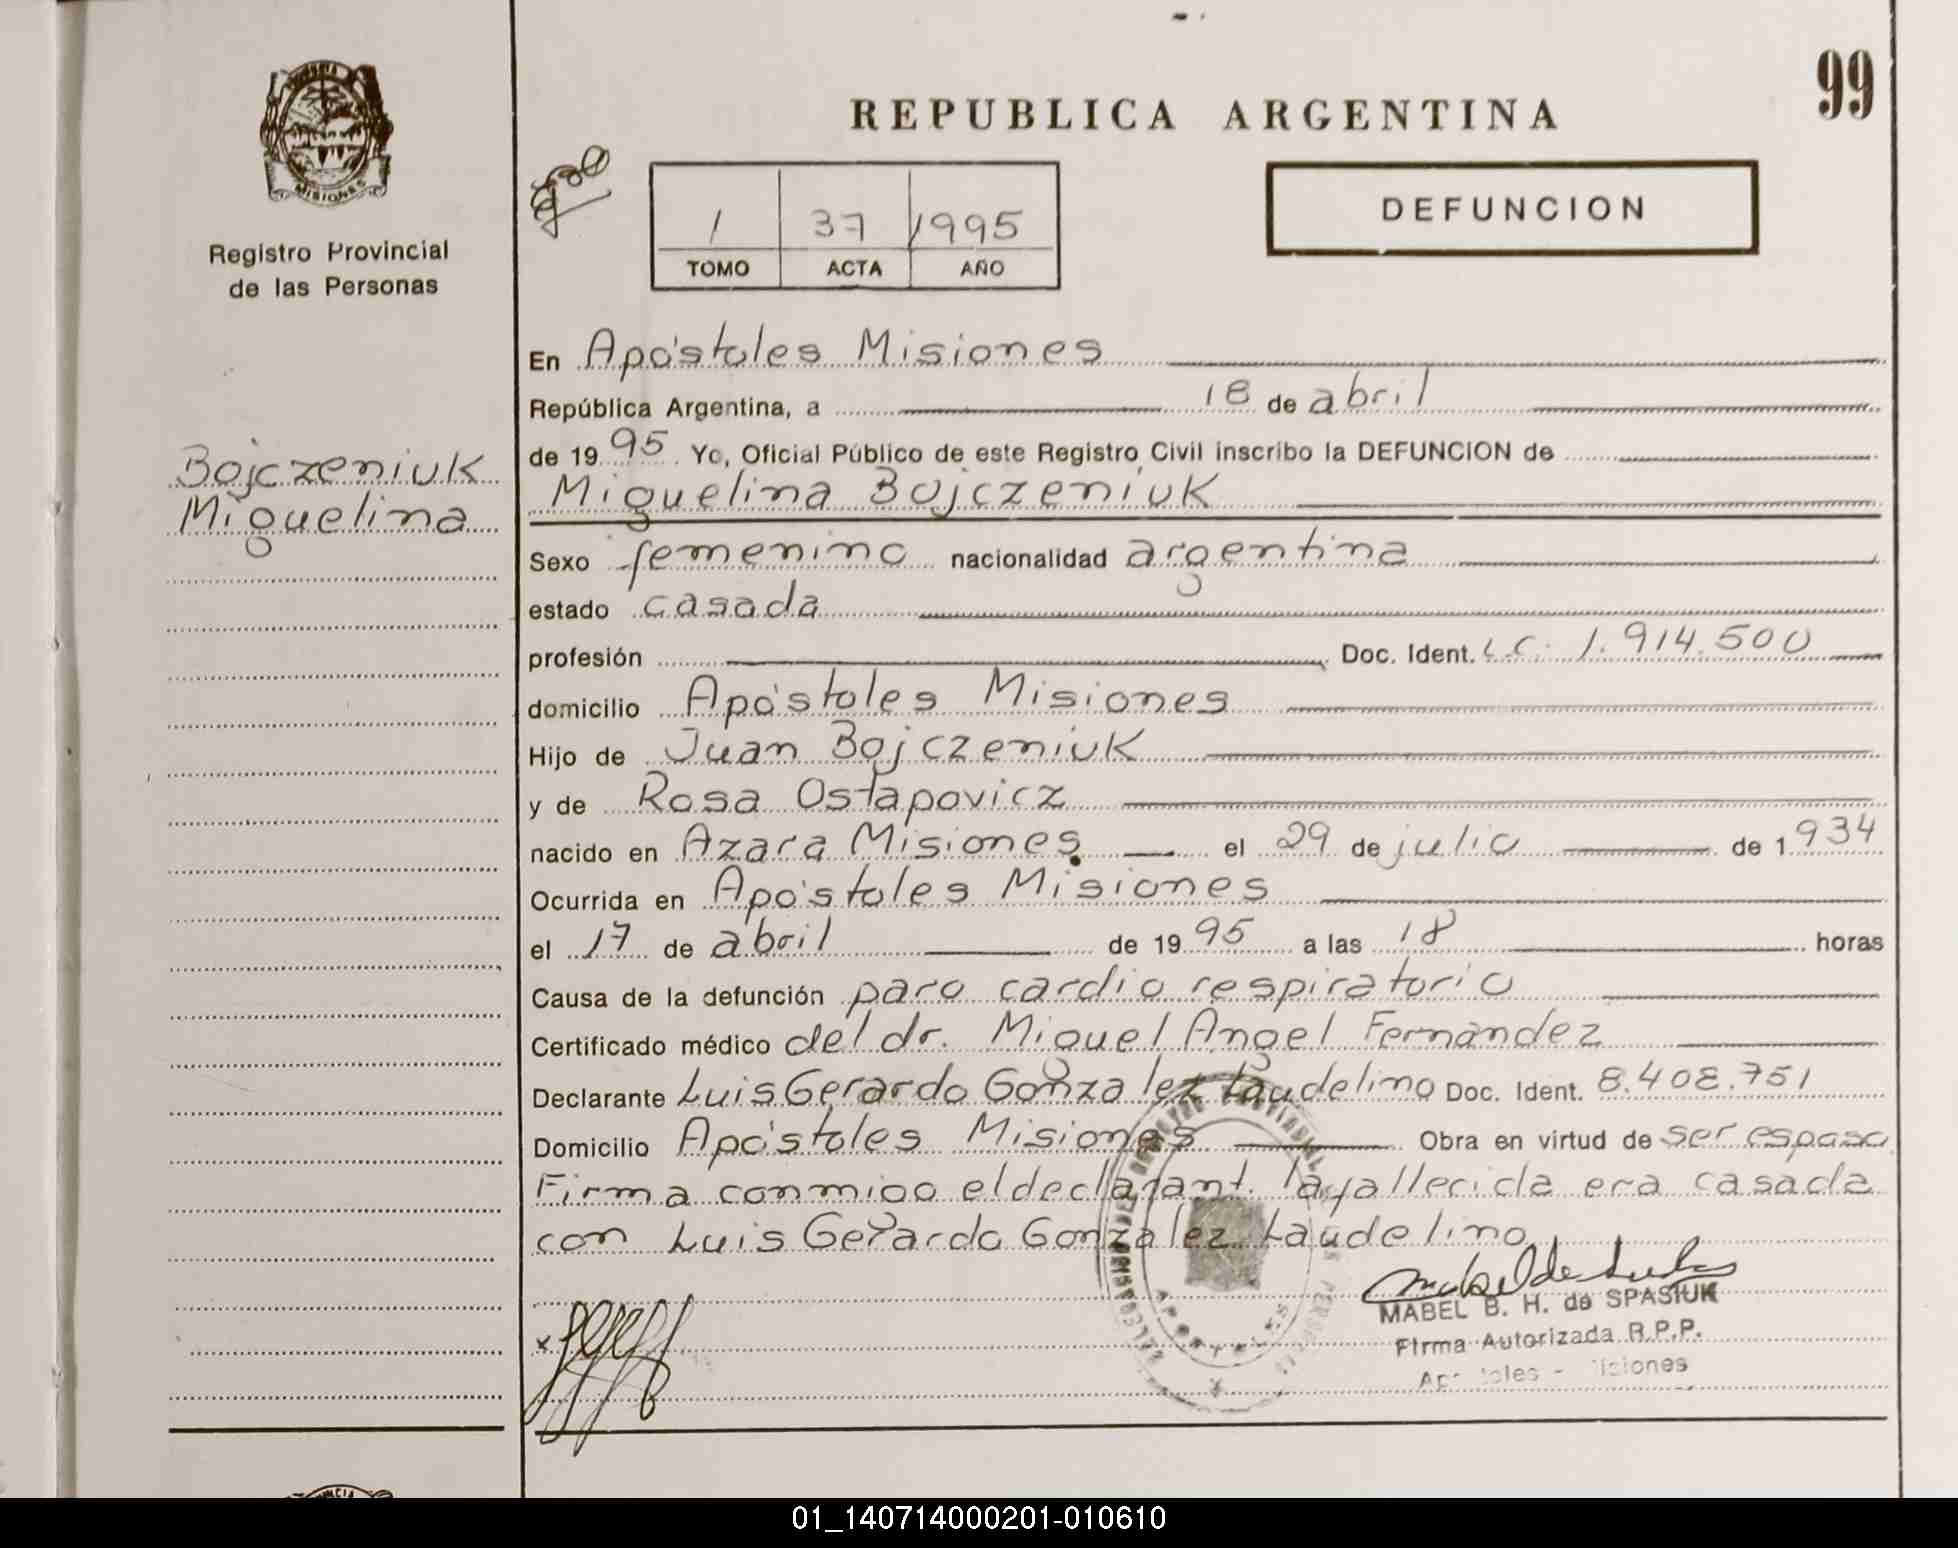 99
REPUBLICA ARGENTINA
MISIONES
Registro Provincial
de las Personas
1 37 1995
TOMO ACTA AÑO
DEFUNCION
Bojczeniuk
Miguelina
En Apóstoles Misiones
República Argentina, a 18 de abril
de 1995 Yo, Oficial Público de este Registro Civil inscribo la DEFUNCION de
Miguelina Bojczeniuk
Sexo femenino nacionalidad argentina
estado casada
profesión Doc. Ident. L.C. 1.914.500
domicilio Apóstoles Misiones
Hijo de Juan Bojczeniuk
y de Rosa Ostapovicz
nacido en Azara Misiones el 29 de julio de 1934
Ocurrida en Apóstoles Misiones
el 17 de abril de 1995 a las 18 horas
Causa de la defunción paro cardio respiratorio
Certificado médico del dr. Miguel Angel Fernandez
Declarante Luis Gerardo Gonzalez Laudelino Doc. Ident. 8.408.751
Domicilio Apóstoles Misiones Obra en virtud de ser esposo
Firma conmigo el declarant. la fallecida era casada
con Luis Gerardo Gonzalez Laudelino
MABEL B. H. de SPASIUK
Firma Autorizada R.P.P.
Apóstoles - Misiones
01_140714000201-010610